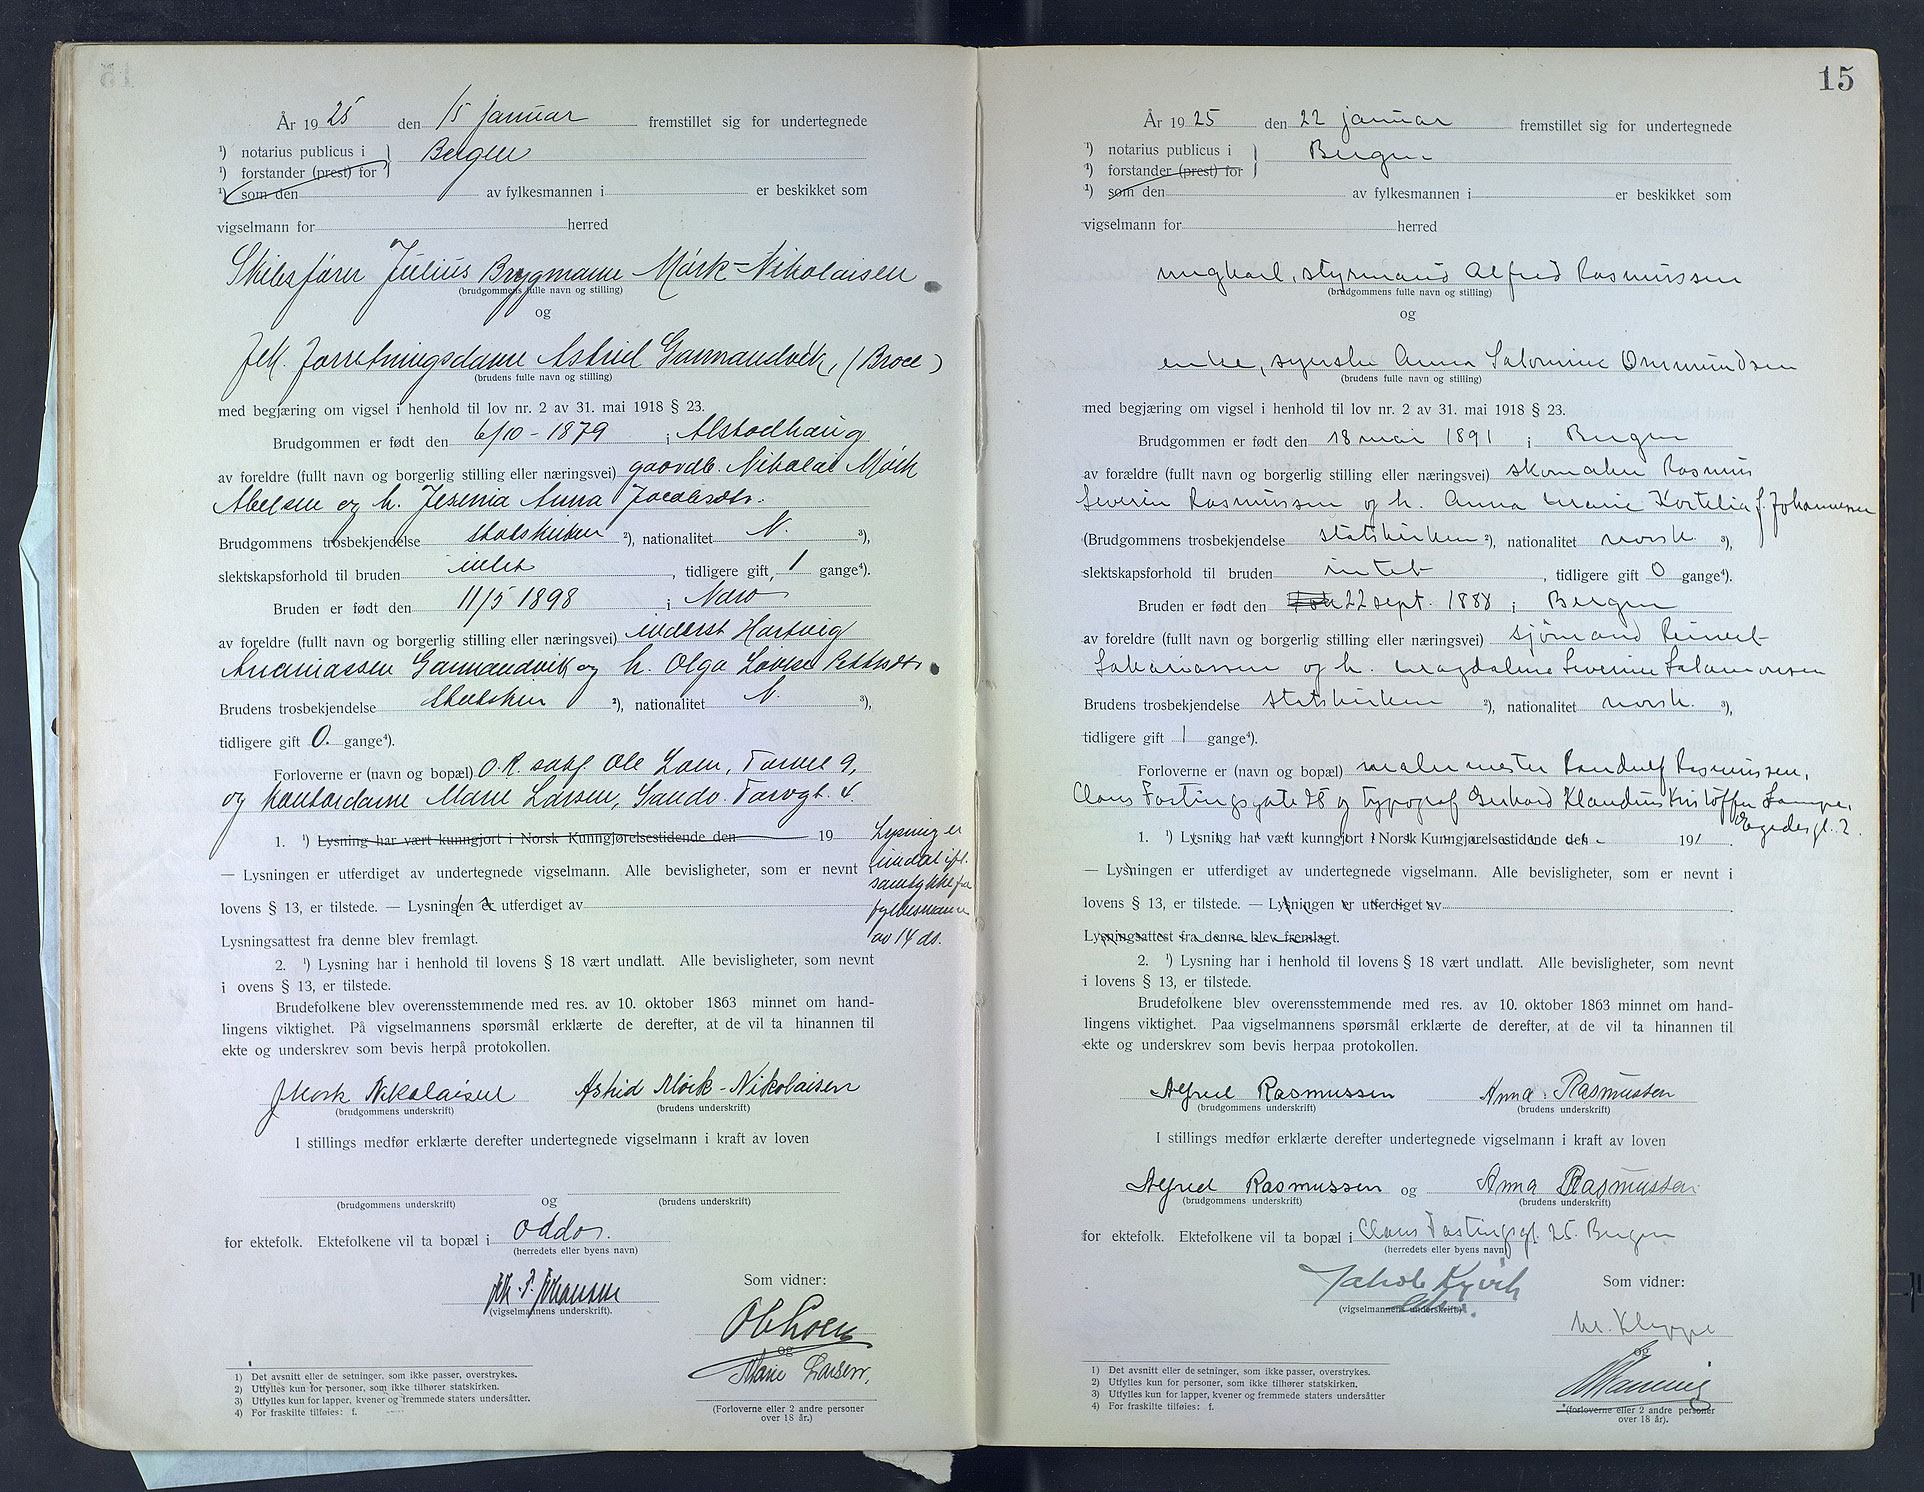 År 1925 den 15 januar fremstillet sig for undertegnede
¹) notarius publicus i Bergen
¹) forstander (prest) for
¹) som den av fylkesmannen i er beskikket som
vigselmann for herred
Skibsfører Julius Brygmann Mörk-Nikolaisen
(brudgommens fulle navn og stilling)
og
frk. forretningsdame Astrid Garmandvik, (Broee)
(brudens fulle navn og stilling)
med begjæring om vigsel i henhold til lov nr. 2 av 31. mai 1918 § 23.
Brudgommen er født den 6/10-1879 i Alstadhaug
av foreldre (fullt navn og borgerlig stilling eller næringsvei) gaardb. Nikolai Mörk
Abelsen og h. Jesenia Anna Jacobsdtr.
Brudgommens trosbekjendelse statskirken ²), nationalitet N. ³),
slektskapsforhold til bruden intet, tidligere gift 1 gange⁴).
Bruden er født den 11/5 1898 i Nærø
av foreldre (fullt navn og borgerlig stilling eller næringsvei) inderst Hartvig
Ananiassen Garmandvik og h. Olga Lovise Pettersdtr.
Brudens trosbekjendelse Statskirken ²), nationalitet N. ³),
tidligere gift 0. gange⁴).
Forloverne er (navn og bopæl) O.R. sakf. Ole Loen, Torvet 9,
og kontordame Marie Larsen, Sandv. Torvgt. 4.
1. ¹) Lysning har vært kunngjort i Norsk Kunngjørelsestidende den 19 Lysning er
— Lysningen er utferdiget av undertegnede vigselmann. Alle bevisligheter, som er nevnt i undlatt ifl.
samtykke fra
lovens § 13, er tilstede. — Lysningen er utferdiget av fylkesmann
Lysningsattest fra denne blev fremlagt. av 14 ds.
2. ¹) Lysning har i henhold til lovens § 18 vært undlatt. Alle bevisligheter, som nevnt
i ovens § 13, er tilstede.
Brudefolkene blev overensstemmende med res. av 10. oktober 1863 minnet om hand-
lingens viktighet. På vigselmannens spørsmål erklærte de derefter, at de vil ta hinannen til
ekte og underskrev som bevis herpå protokollen.
J Mørk Nikolaisen Astrid Mörk-Nikolaisen
(brudgommens underskrift) (brudens underskrift)
I stillings medfør erklærte derefter undertegnede vigselmann i kraft av loven
og
(brudgommens underskrift) (brudens underskrift)
for ektefolk. Ektefolkene vil ta bopæl i Odda.
(herredets eller byens navn)
Johansen Som vidner:
(vigselmannens underskrift).
Ob Loen
og
Marie Larsen.
(Forloverne eller 2 andre personer
over 18 år.)
1) Det avsnitt eller de setninger, som ikke passer, overstrykes.
2) Utfylles kun for personer, som ikke tilhører statskirken.
3) Utfylles kun for lapper, kvener og fremmede staters undersåtter.
4) For fraskilte tilføies: f.
15
År 1925 den 22 januar fremstillet sig for undertegnede
¹) notarius publicus i Bergen
¹) forstander (prest) for
¹) som den av fylkesmannen i er beskikket som
vigselmann for herred
ungkarl, styrmand Alfred Rasmussen
(brudgommens fulle navn og stilling)
og
enke, syerske Anna Salomine Ommundsen
(brudens fulle navn og stilling)
med begjæring om vigsel i henhold til lov nr. 2 av 31. mai 1918 § 23.
Brudgommen er født den 18 mai 1891 i Bergen
av forældre (fullt navn og borgerlig stilling eller næringsvei) skomaker Rasmus
Severin Rasmussen og h. Anna Marie Kortelia f. Johannessen
(Brudgommens trosbekjendelse statskirken ²), nationalitet norsk ³),
slektskapsforhold til bruden intet, tidligere gift 0 gange⁴).
Bruden er født den 22 sept. 1888 i Bergen
av foreldre (fullt navn og borgerlig stilling eller næringsvei) sjömand Reinert
Sakariassen og h. Magdaline Severine Salamonsen
Brudens trosbekjendelse statskirken ²), nationalitet norsk. ³),
tidligere gift 1 gange⁴).
Forloverne er (navn og bopæl) malermester Randulf Rasmussen,
Claus Fastingsgate 25 og typograf Gerhard Klaudius Kristoffer Lampe,
Egedesgt. 2.
1. ¹) Lysning har vært kunngjort i Norsk Kunngjørelsestidende den 191 .
— Lysningen er utferdiget av undertegnede vigselmann. Alle bevisligheter, som er nevnt i
lovens § 13, er tilstede. — Lysningen er utferdiget av
Lysningsattest fra denne blev fremlagt.
2. ¹) Lysning har i henhold til lovens § 18 vært undlatt. Alle bevisligheter, som nevnt
i lovens § 13, er tilstede.
Brudefolkene blev overensstemmende med res. av 10. oktober 1863 minnet om hand-
lingens viktighet. Paa vigselmannens spørsmål erklærte de derefter, at de vil ta hinannen til
ekte og underskrev som bevis herpaa protokollen.
Alfred Rasmussen Anna Rasmussen
(brudgommens underskrift) (brudens underskrift)
I stillings medfør erklærte derefter undertegnede vigselmann i kraft av loven
Alfred Rasmussen og Anna Rasmussen
(brudgommens underskrift) (brudens underskrift)
for ektefolk. Ektefolkene vil ta bopæl i Claus Fastingsgt. 25. Bergen
(herredets eller byens navn)
Jakob Som vidner:
(vigselmannens underskrift)
M. Kleppe
og
Manning
(forloverne eller 2 andre personer
over 18 år).
1) Det avsnitt eller de setninger, som ikke passer, overstrykes.
2) Utfylles kun for personer, som ikke tilhører statskirken.
3) Utfylles kun for lapper, kvener og fremmede staters undersåtter
4) For fraskilte tilføies: f.